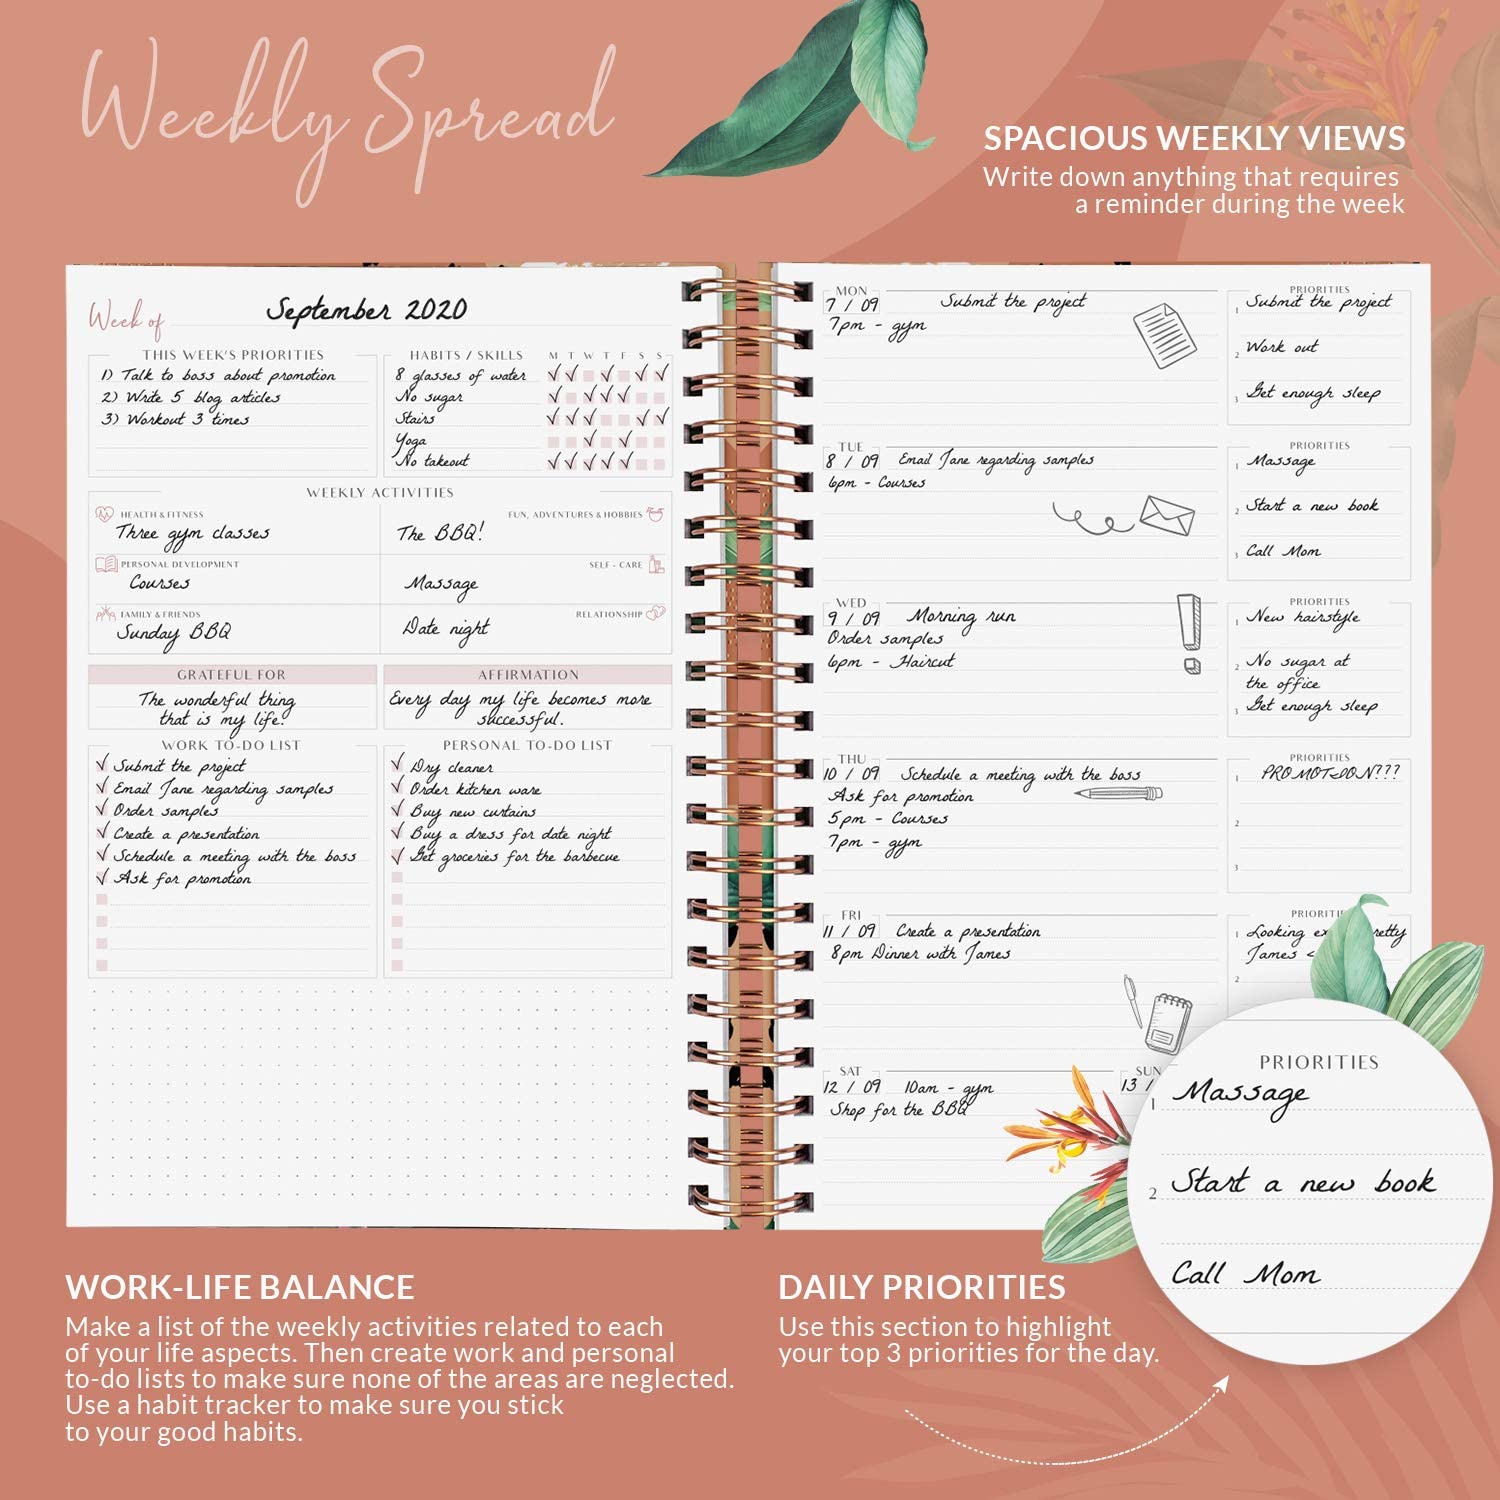 Weekly Spread
SPACIOUS WEEKLY VIEWS
Write down anything that requires
a reminder during the week
Week of September 2020
THIS WEEK'S PRIORITIES
1) Talk to boss about promotion
2) Write 5 blog articles
3) Workout 3 times
HABITS / SKILLS M T W T F S S
8 glasses of water
No sugar
Stairs
Yoga
No takeout
WEEKLY ACTIVITIES
HEALTH & FITNESS
Three gym classes
FUN, ADVENTURES & HOBBIES
The BBQ!
PERSONAL DEVELOPMENT
Courses
SELF - CARE
Massage
FAMILY & FRIENDS
Sunday BBQ
RELATIONSHIP
Date night
GRATEFUL FOR
The wonderful thing
that is my life!
AFFIRMATION
Every day my life becomes more
successful.
WORK TO-DO LIST
Submit the project
Email Jane regarding samples
Order samples
Create a presentation
Schedule a meeting with the boss
Ask for promotion
PERSONAL TO-DO LIST
Dry cleaner
Order kitchen ware
Buy new curtains
Buy a dress for date night
Get groceries for the barbecue
MON
7 / 09 Submit the project
7pm - gym
PRIORITIES
1 Submit the project
2 Work out
3 Get enough sleep
TUE
8 / 09 Email Jane regarding samples
6pm - Courses
PRIORITIES
1 Massage
2 Start a new book
3 Call Mom
WED
9 / 09 Morning run
Order samples
6pm - Haircut
PRIORITIES
1 New hairstyle
2 No sugar at
the office
3 Get enough sleep
THU
10 / 09 Schedule a meeting with the boss
Ask for promotion
5pm - Courses
7pm - gym
PRIORITIES
1 PROMOTION???
2
3
FRI
11 / 09 Create a presentation
8pm Dinner with James
1 Looking
James <
2
SAT
12 / 09 10am - gym
Shop for the BBQ
SUN
13 /
PRIORITIES
1 Massage
2 Start a new book
Call Mom
WORK-LIFE BALANCE
Make a list of the weekly activities related to each
of your life aspects. Then create work and personal
to-do lists to make sure none of the areas are neglected.
Use a habit tracker to make sure you stick
to your good habits.
DAILY PRIORITIES
Use this section to highlight
your top 3 priorities for the day.